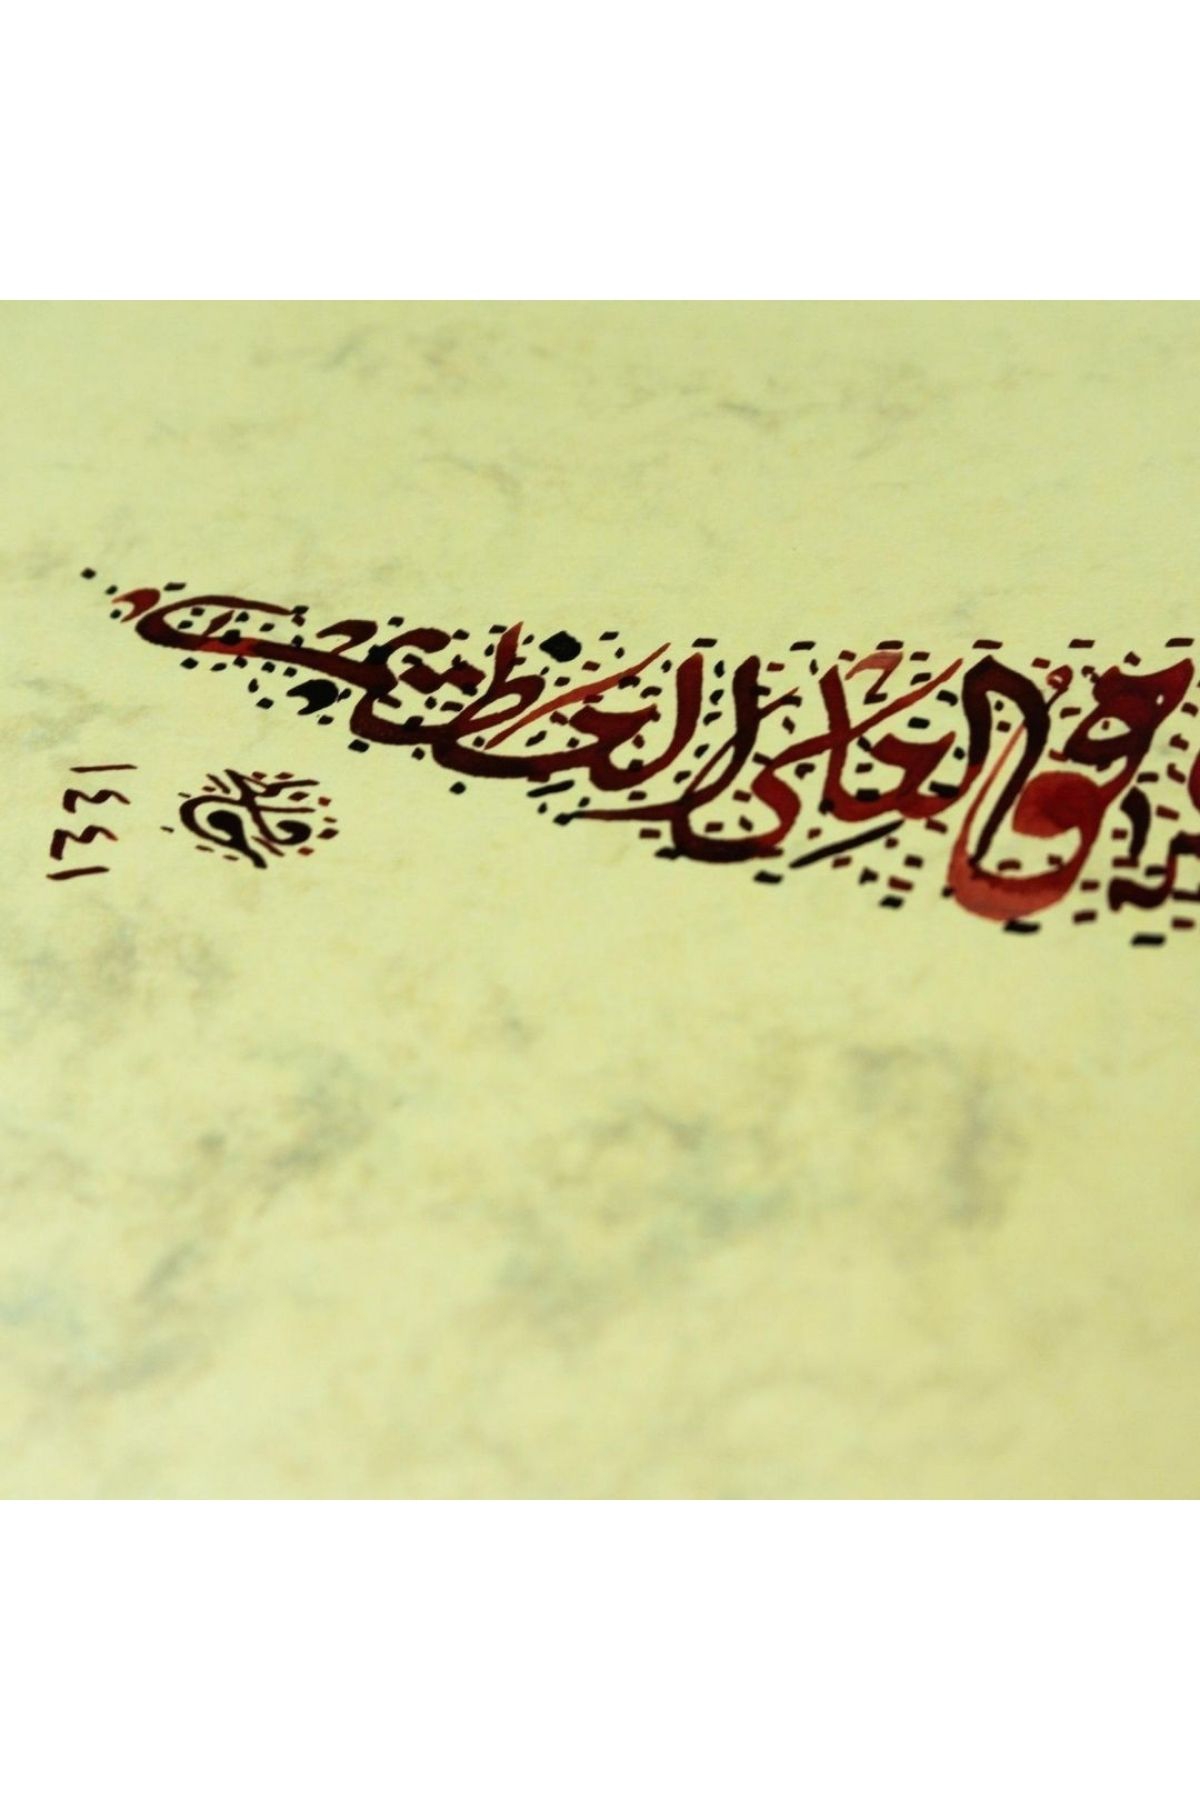 وهو العلي العظيم
١٤٤١